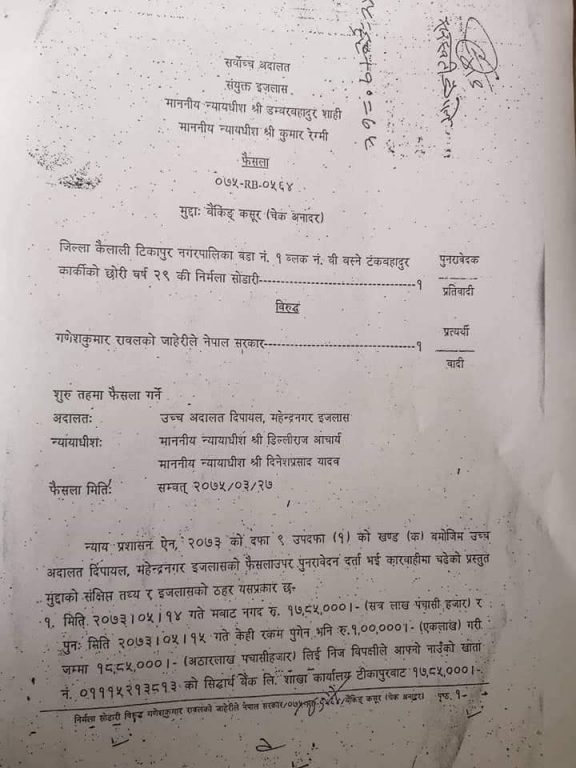 सर्वोच्च अदालत
संयुक्त इजलास
माननीय न्यायधीश श्री डम्बरबहादुर शाही
माननीय न्यायधीश श्री कुमार रेग्मी
फैसला
०७५-RB-०५६४
मुद्दाः बैंकिङ्ग कसूर (चेक अनादर)
जिल्ला कैलाली टिकापुर नगरपालिका वडा नं. १ ब्लक नं. बी वस्ने टंकबहादुर
कार्कीको छोरी वर्ष २९ की निर्मला सोडारी-----------------------------------१
पुनरावेदक
प्रतिवादी
विरुद्ध
गणेशकुमार रावलको जाहेरीले नेपाल सरकार---------------------------------१
प्रत्यर्थी
वादी
शुरु तहमा फैसला गर्ने
अदालतः उच्च अदालत दिपायल, महेन्द्रनगर इजलास
न्यायाधीशः माननीय न्यायाधीश श्री डिल्लीराज आचार्य
माननीय न्यायाधीश श्री दिनेशप्रसाद यादव
फैसला मितिः सम्वत् २०७५/०३/२७
न्याय प्रशासन ऐन, २०७३ को दफा ९ उपदफा (१) को खण्ड (क) बमोजिम उच्च
अदालत दिपायल, महेन्द्रनगर इजलासको फैसलाउपर पुनरावेदन दर्ता भई कारवाहीमा चढेको प्रस्तुत
मुद्दाको संक्षिप्त तथ्य र इजलासको ठहर यसप्रकार छ-
१. मिति २०७३।०५।१४ गते मबाट नगद रु. १७,८५,०००।- (सत्र लाख पंचासी हजार) र
पुनः मिति २०७३।०५।१५ गते केही रकम पुगेन भनि रु.१,००,०००।- (एकलाख) गरी
जम्मा १८,८५,०००।- (अठारलाख पचासीहजार) लिई निज विपक्षीले आफ्नो नाउँको खाता
नं. ०१११५२१३८१३ को सिद्धार्थ बैंक लि. शाखा कार्यालय टीकापुरबाट १७,८५,०००।-
निर्मला सोडारी विरुद्ध गणेशकुमार रावलको जाहेरीले नेपाल सरकार/०७५-RB-०५६४/बैंकिङ्ग कसूर (चेक अनादर) पृष्ठ १-